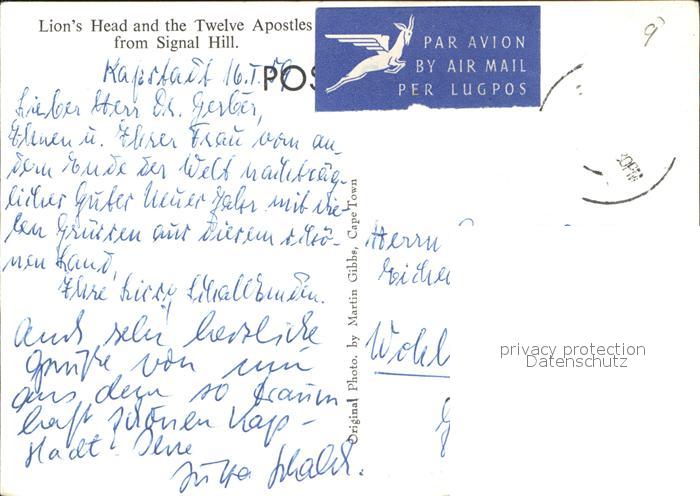 Lion's Head and the Twelve Apostles
from Signal Hill.
POS
PAR AVION
BY AIR MAIL
PER LUGPOS
Kapstadt 16.I.
Lieber Herr Dr. Gerber,
Ihnen u. Ihrer Frau vom an-
dern Ende der Welt nachträg-
licher Guter Neuer Jahr mit vie-
len Grüssen aus diesem schö-
nen Land,
Ihre
Auch sehr herzliche
Grüße von mir
aus dem so traum
haft schönen Kap-
stadt. Ihre
Jutta
Original Photo. by Martin Gibbs, Cape Town
Herrn
Eiche
Wohl
privacy protection
Datenschutz